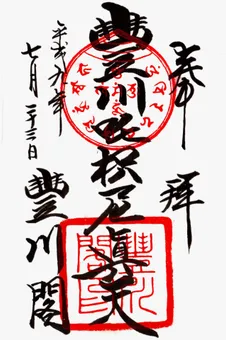 奉拝
豊川吒枳尼眞天
平成九年
七月二十三日
豊川閣
豊川閣印